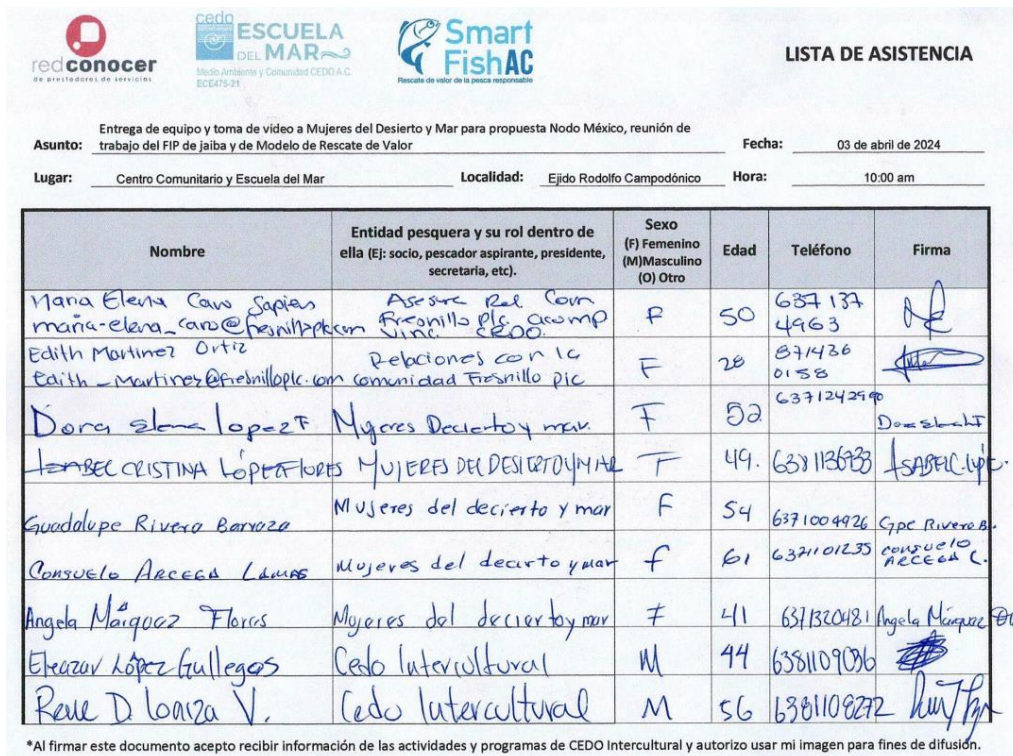 redconocer
de prestadores de servicios
cedo
ESCUELA
DEL MAR
Medio Ambiente y Comunidad CEDO A.C.
ECE475-21
Smart
FishAC
Rescate de valor de la pesca responsable
LISTA DE ASISTENCIA
Asunto: Entrega de equipo y toma de video a Mujeres del Desierto y Mar para propuesta Nodo México, reunión de
trabajo del FIP de jaiba y de Modelo de Rescate de Valor
Fecha: 03 de abril de 2024
Lugar: Centro Comunitario y Escuela del Mar Localidad: Ejido Rodolfo Campodónico Hora: 10:00 am
Nombre
Entidad pesquera y su rol dentro de
ella (Ej: socio, pescador aspirante, presidente,
secretaria, etc).
Sexo
(F) Femenino
(M)Masculino
(O) Otro
Edad
Teléfono
Firma
Maria Elena Caro Sapien
maria-elena_caro@fresnilloplc.com
Rel Com
Fresnillo Plc acomp
Vinc. CEDO
F 50 637 137
4963
Edith Martinez Ortiz
Edith_Martinez@fresnilloplc.com
Relaciones con la
comunidad Fresnillo plc
F 28 871436
0158
Dora Elena lopez F Mujeres Decierto y mar. F 52 6371242990
ISABEL CRISTINA LÓPEZ FLORES MUJERES DEL DESIERTO Y MAR F 49. 6381136733 ISABEL C.
Guadalupe Rivera Barraza Mujeres del decierto y mar F 54 6371004926 Gpe Rivera B.
CONSUELO ARCEGA LAMAS Mujeres del decirto y mar f 61 6371101235 consuelo
ARCEGA L.
Angela Márquez Flores Mujeres del decierto y mar F 41 6371320481 Angela Márquez
Eleazar López Gallegos Cedo Intercultural M 44 6381109086
Rene D. Loaiza V. Cedo Intercultural M 56 6381108272
*Al firmar este documento acepto recibir información de las actividades y programas de CEDO Intercultural y autorizo usar mi imagen para fines de difusión.